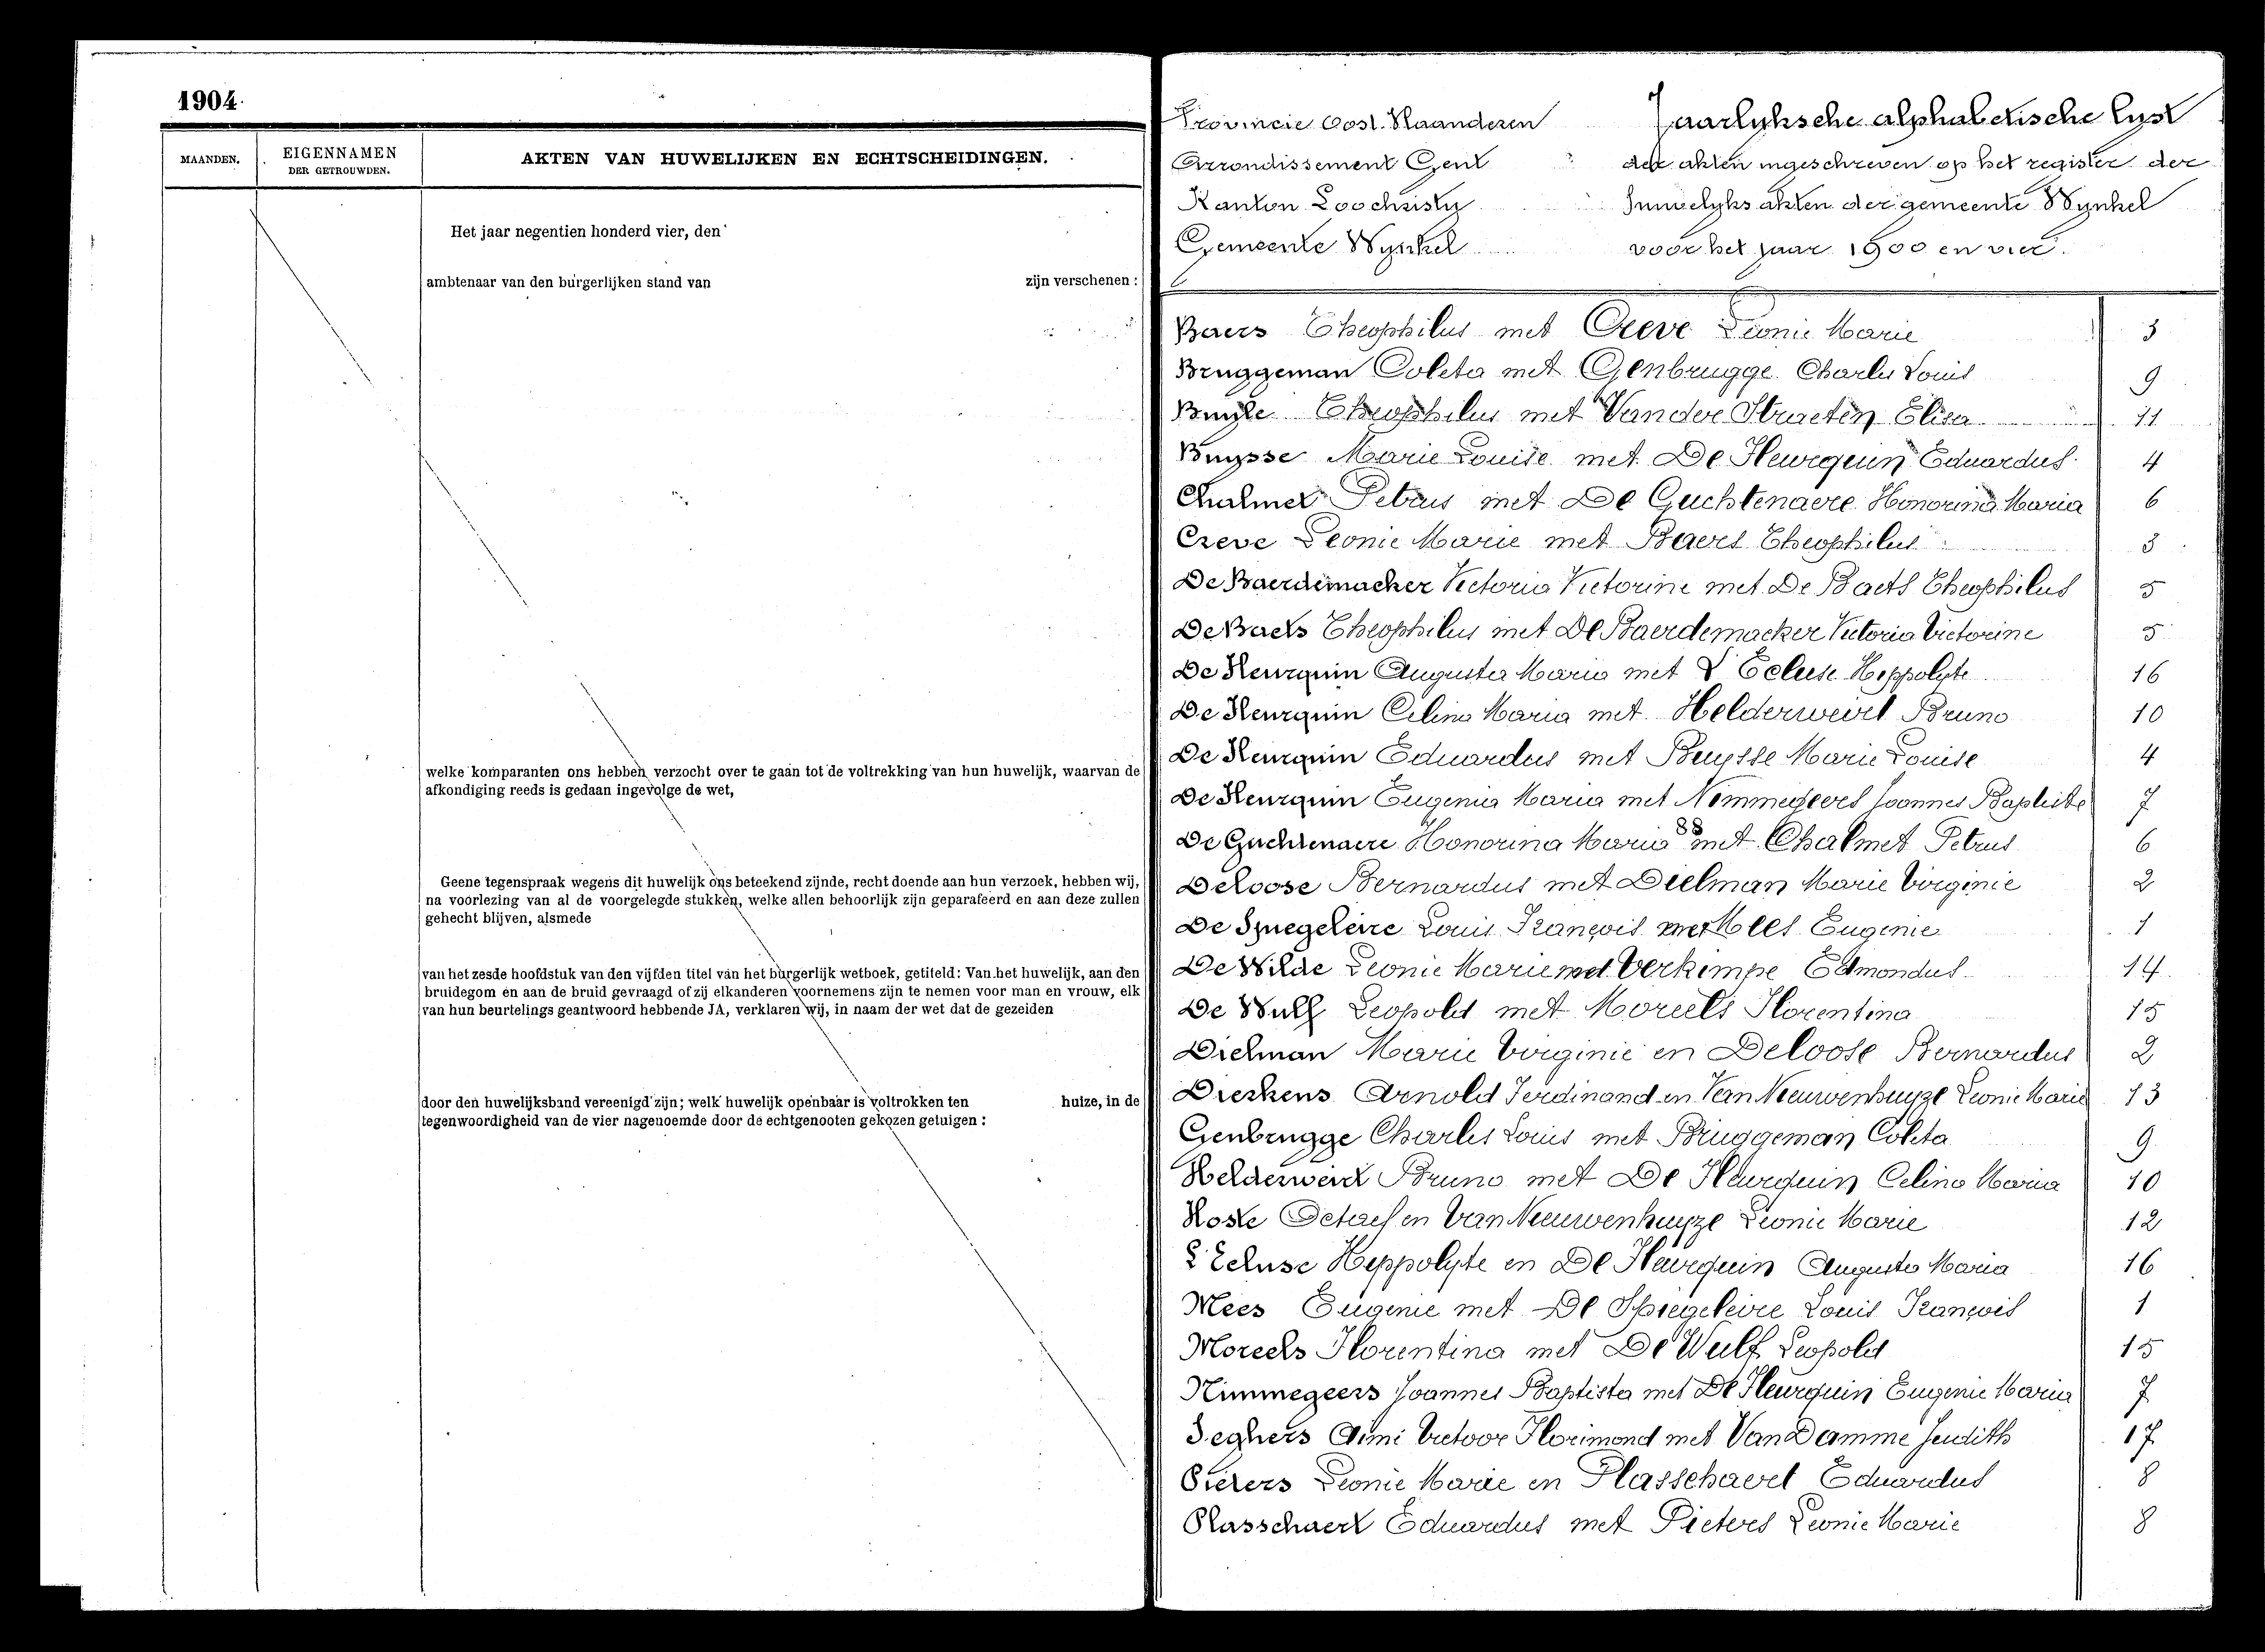 1904.
MAANDEN.
EIGENNAMEN
DER GETROUWDEN.
AKTEN VAN HUWELIJKEN EN ECHTSCHEIDINGEN.
Het jaar negentien honderd vier, den
ambtenaar van den burgerlijken stand van zijn verschenen :
welke komparanten ons hebben verzocht over te gaan tot de voltrekking van hun huwelijk, waarvan de
afkondiging reeds is gedaan ingevolge de wet,
Geene tegenspraak wegens dit huwelijk ons beteekend zijnde, recht doende aan hun verzoek, hebben wij,
na voorlezing van al de voorgelegde stukken, welke allen behoorlijk zijn geparafeerd en aan deze zullen
gehecht blijven, alsmede
van het zesde hoofdstuk van den vijfden titel van het burgerlijk wetboek, getiteld: Van het huwelijk, aan den
bruidegom en aan de bruid gevraagd of zij elkanderen voornemens zijn te nemen voor man en vrouw, elk
van hun beurtelings geantwoord hebbende JA, verklaren wij, in naam der wet dat de gezeiden
door den huwelijksband vereenigd zijn; welk huwelijk openbaar is voltrokken ten huize, in de
tegenwoordigheid van de vier nagenoemde door de echtgenooten gekozen getuigen :
Provincie Oost. Vlaanderen
Arrondissement Gent
Kanton Loochristy
Gemeente Wynkel
Jaarlyksche alphabetische lyst
der akten ingeschreven op het register der
huwelyks akten der gemeente Wynkel
voor het jaar 1900 en vier.
Baers Theophilus met Creve Leonie Marie 3
Bruggeman Coleta met Genbrugge Charles Louis 9
Buyle Theophilus met Van der Straeten Elisa 11
Buysse Marie Louise met De Heurquin Eduardus 4
Chalmet Petrus met De Guchtenaere Honorina Maria 6
Creve Leonie Marie met Baers Theophilus 3
De Baerdemacker Victoria Victorine met De Baets Theophilus 5
De Baets Theophilus met De Baerdemacker Victoria Victorine 5
De Heurquin Augusta Maria met L'Ecluse Heppolyte 16
De Heurquin Celina Maria met Helderweirt Bruno 10
De Heurquin Eduardus met Buysse Marie Louise 4
De Heurquin Eugenia Maria met Nimmegeers Joannes Baptiste 7
De Guchtenaere Honorina Maria met Chalmet Petrus 6
Deloose Bernardus met Dielman Marie Virginie 2
De Spiegeleire Louis François met Mees Eugenie 1
De Wilde Leonie Marie met Verkimpe Edmondus 14
De Wulf Leopold met Moreels Florentina 15
Dielman Marie Virginie en Deloose Bernardus 2
Dierkens Arnold Ferdinand en Van Nieuwenhuyze Leonie Marie 13
Genbrugge Charles Louis met Bruggeman Coleta 9
Helderweirt Bruno met De Heurquin Celina Maria 10
Hoste Octaef en Van Nieuwenhuyze Leonie Marie 12
L'Ecluse Heppolyte en De Heurquin Augusta Maria 16
Mees Eugenie met De Spiegeleire Louis François 1
Moreels Florentina met De Wulf Leopold 15
Nimmegeers Joannes Baptista met De Heurquin Eugenie Maria 7
Seghers Aimi Victoor Florimond met Van Damme Judith 17
Pieters Leonie Marie en Plasschaert Eduardus 8
Plasschaert Eduardus met Pieters Leonie Marie 8